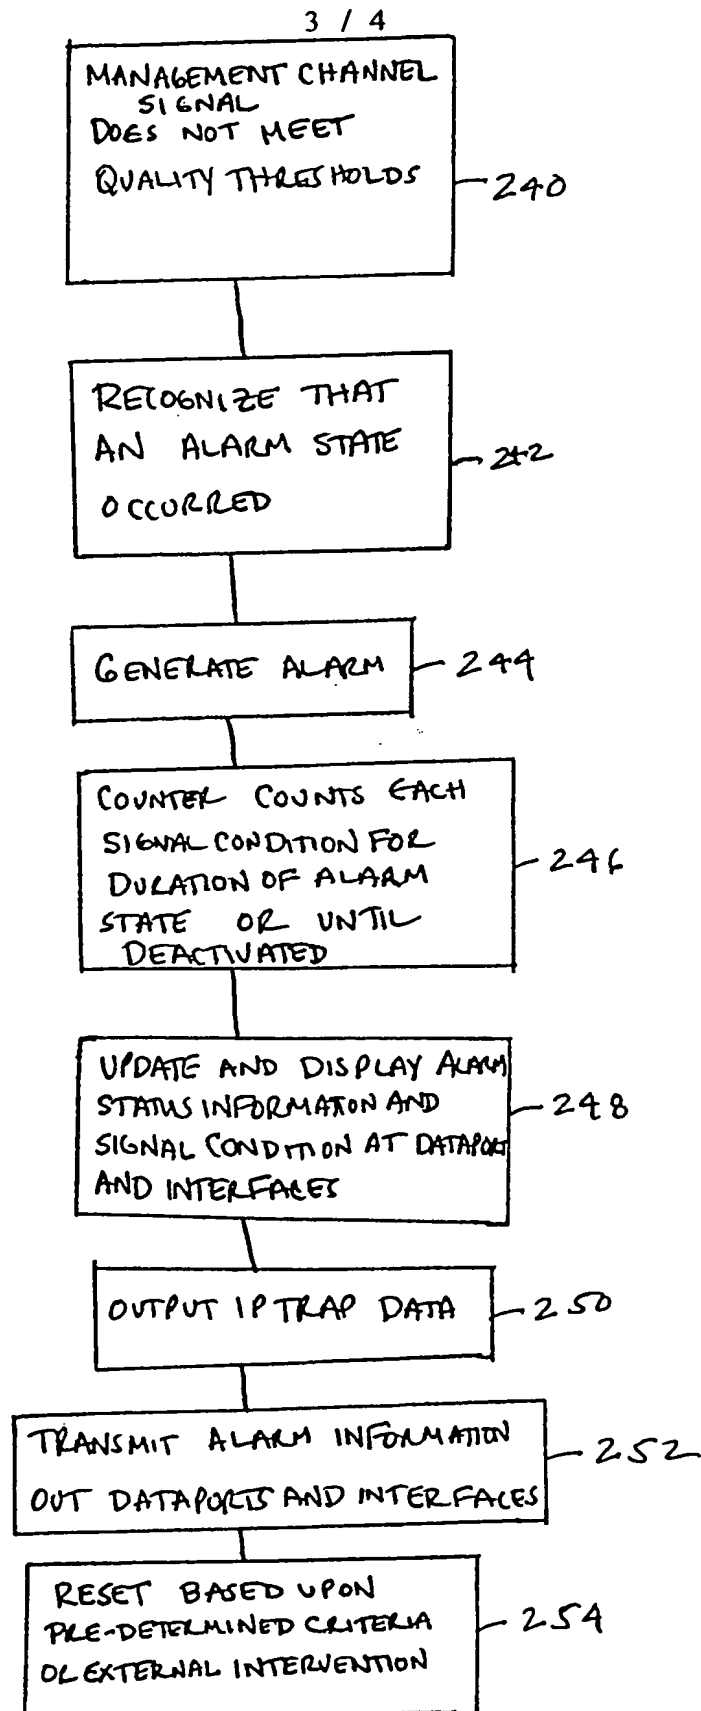 3 / 4
MANAGEMENT CHANNEL
SIGNAL
DOES NOT MEET
QUALITY THRESHOLDS
240
RECOGNIZE THAT
AN ALARM STATE
OCCURRED
242
GENERATE ALARM
244
COUNTER COUNTS EACH
SIGNAL CONDITION FOR
DURATION OF ALARM
STATE OR UNTIL
DEACTIVATED
246
UPDATE AND DISPLAY ALARM
STATUS INFORMATION AND
SIGNAL CONDITION AT DATAPORT
AND INTERFACES
248
OUTPUT IP TRAP DATA
250
TRANSMIT ALARM INFORMATION
OUT DATAPORTS AND INTERFACES
252
RESET BASED UPON
PRE-DETERMINED CRITERIA
OR EXTERNAL INTERVENTION
254